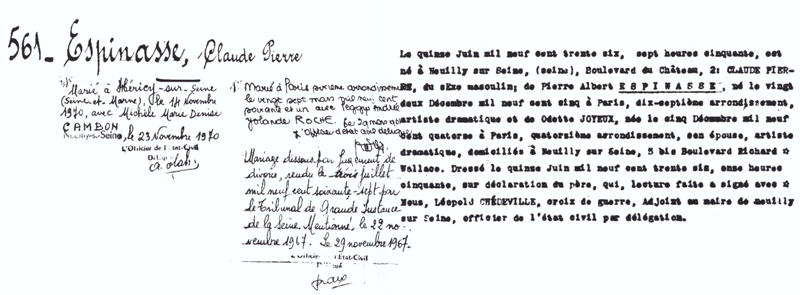 561_ Espinasse, Claude Pierre
Marié à Théricy-sur-Seine
(Seine-et-Marne), le 14 Novembre
1970, avec Michèle Marie Denise
CAMBON
Neuilly-sur-Seine, le 23 Novembre 1970
L'Officier de l'Etat-Civil
Délégué
Marié à Paris onzième arrondissement
le vingt sept mars mil neuf cent
soixante et un avec Peggy
Yolande ROCHE.
L'Officier d'état civil délégué
Mariage dissous par Jugement de
divorce, rendu le trois juillet
mil neuf cent soixante-sept par
le Tribunal de Grande Instance
de la Seine. Mentionné, le 22 no-
vembre 1967. Le 29 novembre 1967.
L'Officier de l'Etat-Civil
Le quinze Juin mil neuf cent trente six, sept heures cinquante, est
né à Neuilly sur Seine, (seine), Boulevard du Château, 2: CLAUDE PIER-
RE, du sExe masculin; de Pierre Albert ESPINASSE, né le vingt
deux Décembre mil neuf cent cinq à Paris, dix-septième arrondissement,
artiste dramatique et de Odette JOYEUX, née le cinq Décembre mil neuf
cent quatorze à Paris, quatorzième arrondissement, son épouse, artiste
dramatique, domiciliés à Neuilly sur Seine, 5 bis Boulevard Richard ☆
Wallace. Dressé le quinze Juin mil neuf cent trente six, onze heures
cinquante, sur déclaration du père, qui, lecture faite a signé avec ☆
Nous, Léopold CHÉDEVILLE, croix de guerre, Adjoint au maire de neuilly
sur Seine, officier de l'état civil par délégation.